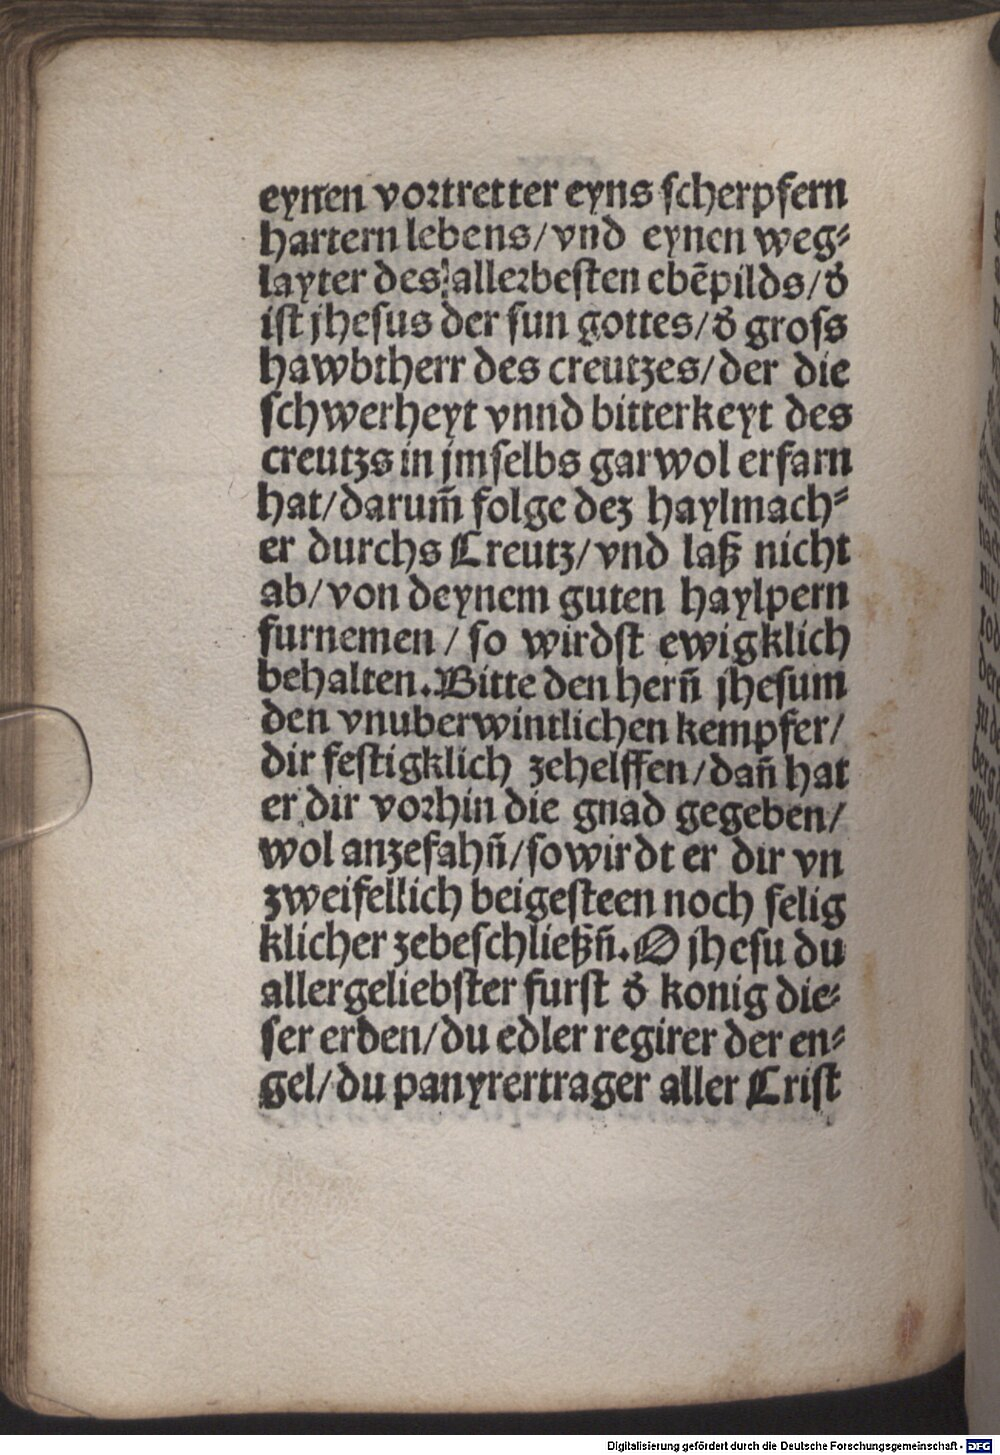 eynen vortretter eyns scherpfern
hartern lebens/vnd eynen weg⸗
layter des allerbesten ebẽpilds/ď
ist jhesus der sun gottes/ď gross
hawbtherr des creutzes/der die
schwerheyt vnnd bitterkeyt des
creutzs in jmselbs garwol erfarn
hat/darum̃ folge dez haylmach⸗
er durchs Creutz/vnd laß nicht
ab/von deynem guten haylpern
furnemen/so wirdst ewigklich
behalten. Bitte den hern̄ jhesum
den vnuberwintlichen kempfer/
dir festigklich zehelffen/dan̄ hat
er dir vorhin die gnad gegeben/
wol anzefahn̄/so wirdt er dir vn
zweifellich beigesteen noch selig
klicher zebeschließn̄. O jhesu du
allergeliebster furst ď konig die⸗
ser erden/du edler regirer der en⸗
gel/du panyrertrager aller Crist
Digitalisierung gefördert durch die Deutsche Forschungsgemeinschaft - DFG